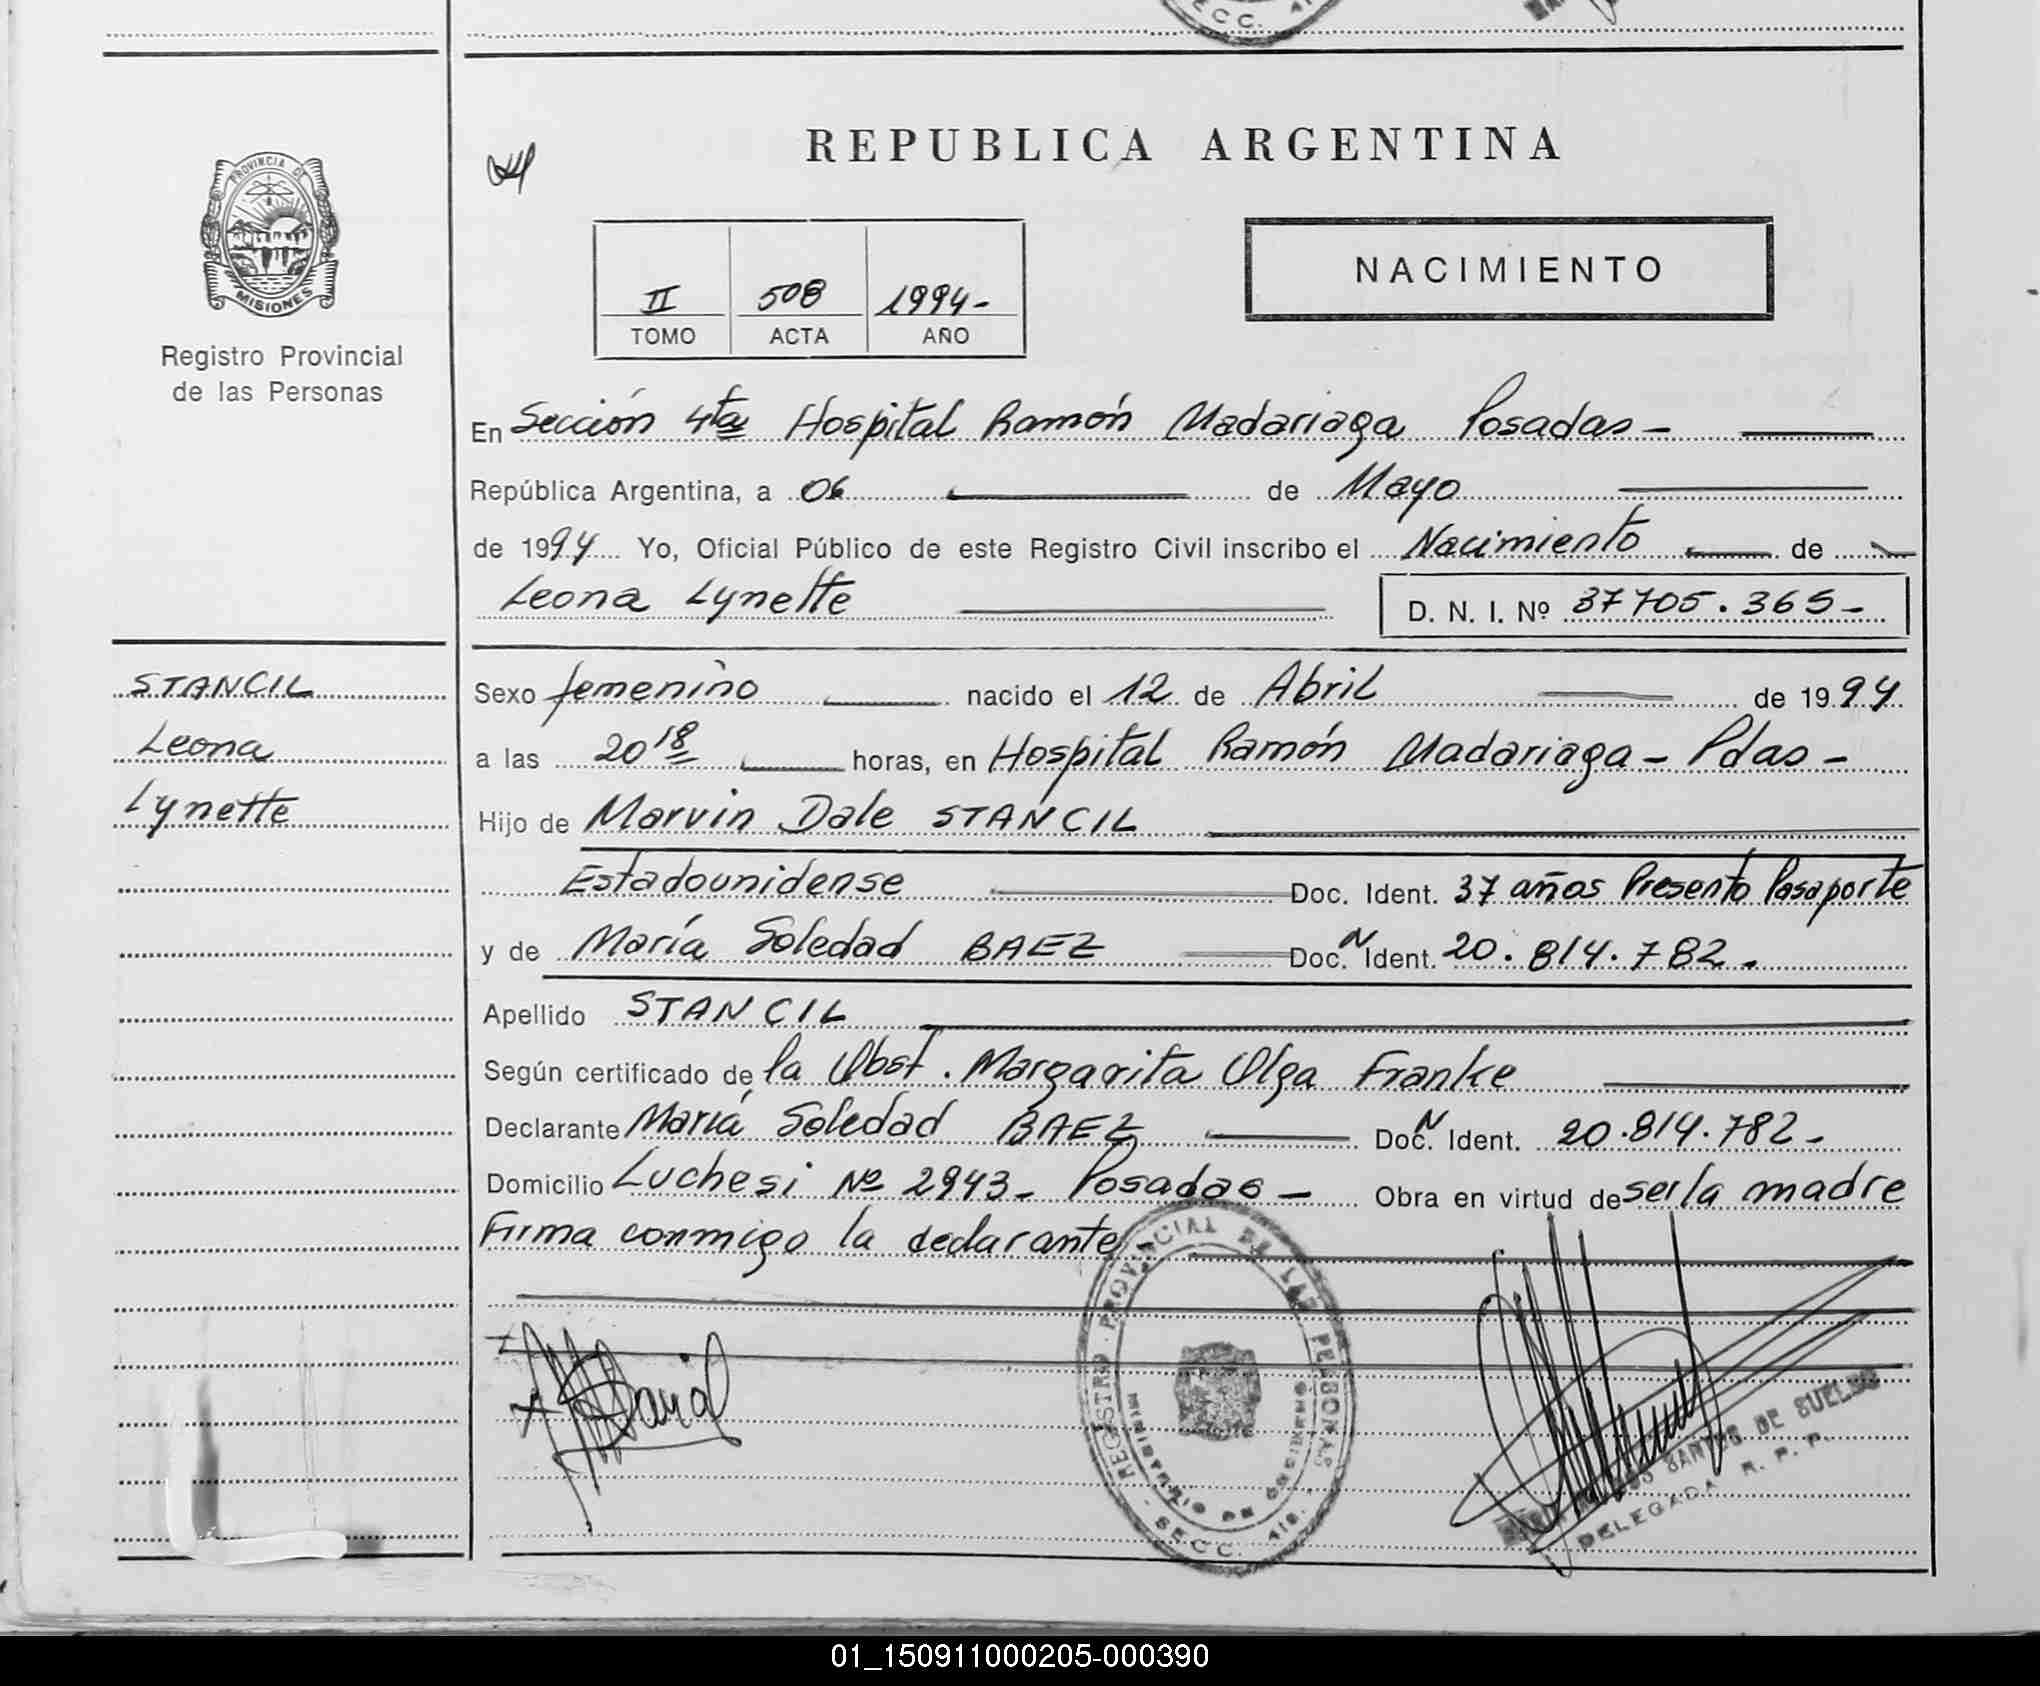 SECC. 4
REPUBLICA ARGENTINA
PROVINCIA DE
MISIONES
Registro Provincial
de las Personas
II 508 1994-
TOMO ACTA AÑO
NACIMIENTO
En Sección 4ta Hospital Ramón Madariaga Posadas-
República Argentina, a 06 de Mayo
de 1994 Yo, Oficial Público de este Registro Civil inscribo el Nacimiento de
Leona Lynette D. N. I. Nº 37705.365-
STANCIL
Leona
Lynette
Sexo femenino nacido el 12 de Abril de 1994
a las 20 18 horas, en Hospital Ramón Madariaga - Pdas -
Hijo de Marvin Dale STANCIL
Estadounidense Doc. Ident. 37 años Presentó Pasaporte
y de María Soledad BAEZ Doc. N Ident. 20.814.782.
Apellido STANCIL
Según certificado de la Obst. Margarita Olga Franke
Declarante María Soledad BAEZ Doc. N Ident. 20.814.782-
Domicilio Luchesi Nº 2943- Posadas - Obra en virtud de ser la madre
Firma conmigo la declarante-
REGISTRO PROVINCIAL DE LAS PERSONAS
MINISTERIO DE GOBIERNO
SECC. 4ta.
SANTOS DE SUELDO
DELEGADA R. P. P.
01_150911000205-000390